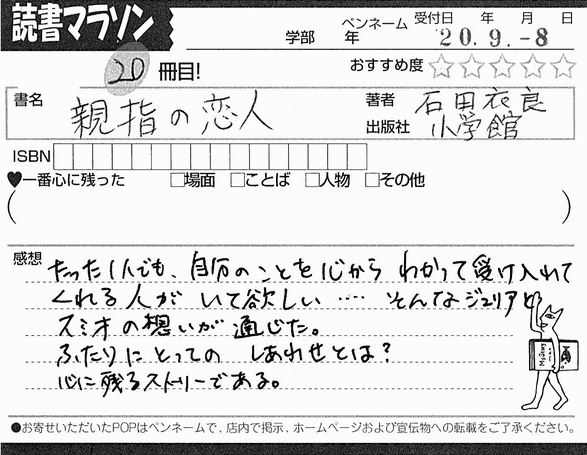 読書マラソン
学部 年 ペンネーム 受付日 年 月 日
20.9.-8
20 冊目!
おすすめ度 ☆☆☆☆☆
書名 親指の恋人
著者 石田衣良
出版社 小学館
ISBN
♥一番心に残った □場面 □ことば □人物 □その他
( )
感想
たった1人でも、自分のことを心から わかって受け入れて
くれる人が いて欲しい …… そんなジュリアと
スミオの想いが通じた。
ふたりにとっての しあわせとは?
心に残るストーリーである。
●お寄せいただいたPOPはペンネームで、店内で掲示、ホームページおよび宣伝物への転載をご了承ください。